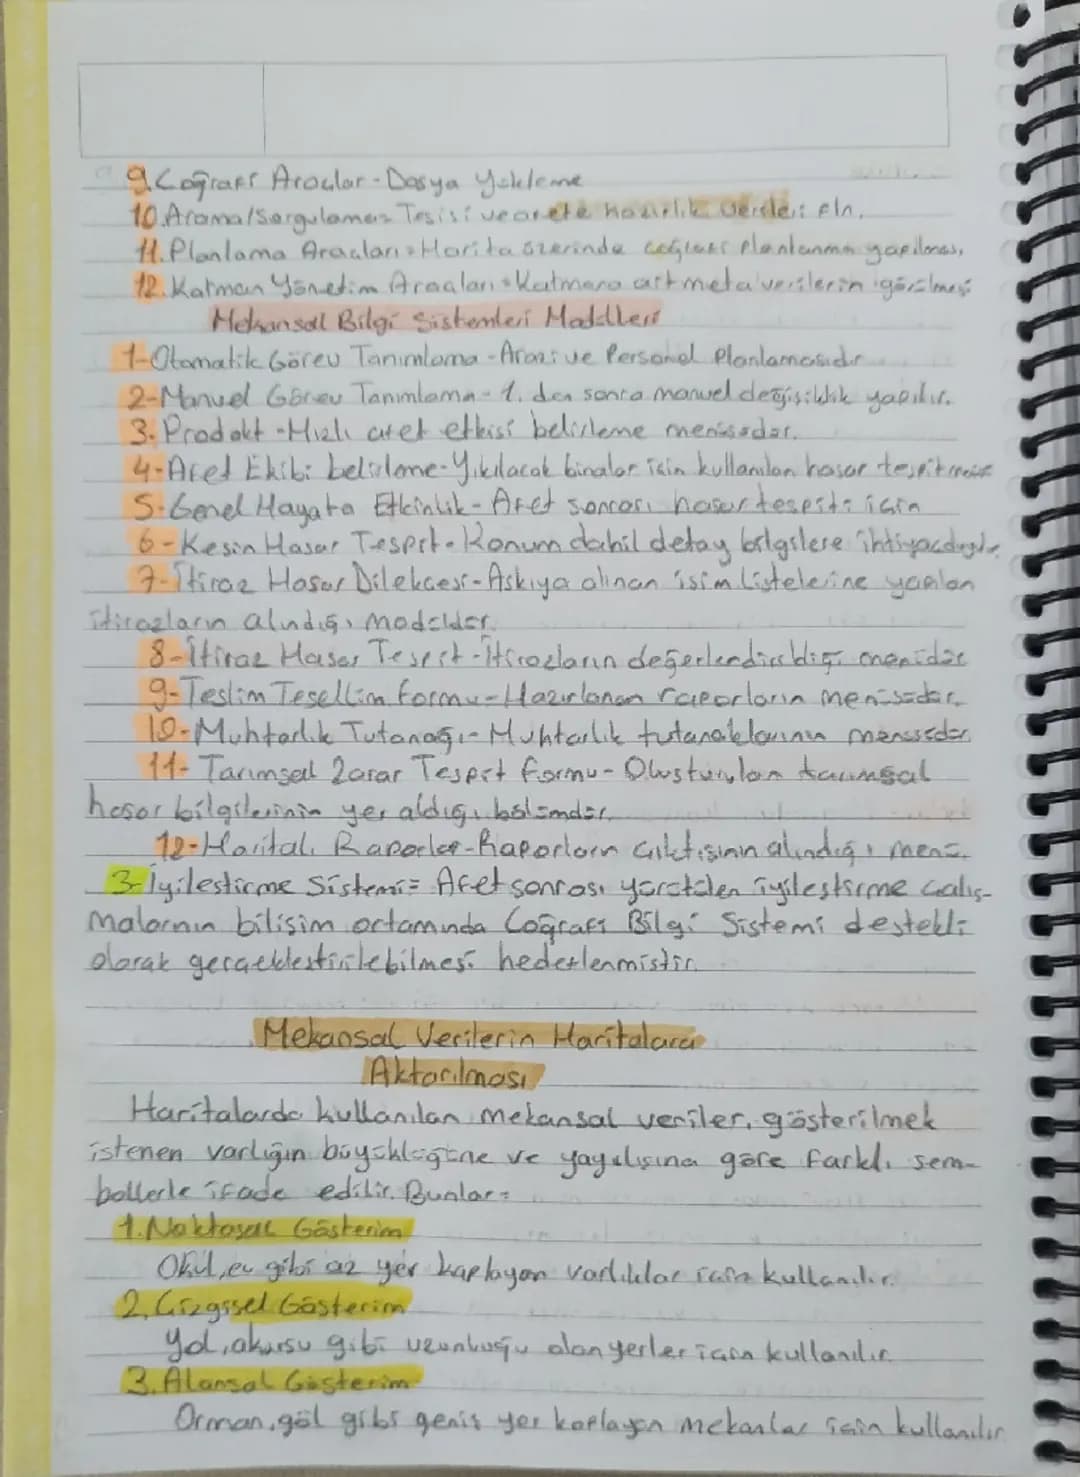 9.Coğrafi Araçlar-Dosya Yükleme
10.Arama/Sorgulama= Tesisi ve afete hazırlık verileri
11.Planlama Araçları=Harita üzerinde coğrafi planlanma yapılması,
12.Katman Yönetim Araçları=Katmana ait meta verilerin görülmesi
Mekansal Bilgi Sistemleri Modülleri
1-Otomatik Görev Tanımlama-Arazi ve Personel Planlamasıdır
2-Manuel Görev Tanımlama-1. den sonra manuel değişiklik yapılır.
3.Prodakt-Hızlı afet etkisi belirleme menüsüdür.
4-Afet Etkibi belirleme-Yıkılacak binalar için kullanılan hasar tespit
5-Genel Hayata Etkinlik-Afet sonrası hasar tespiti için
6-Kesin Hasar Tespit-Konum dahil detay bilgilere ihtiyaç
7-İtiraz Hasar Dilekçesi-Askıya alınan isim listelerine yapılan
itirazların alındığı modüldür.
8-İtiraz Hasar Tespit-İtirazların değerlendirildiği menüdür
9-Teslim Tesellüm formu-Hazırlanan raporların menüsüdür.
10-Muhtarlık Tutanağı-Muhtarlık tutanaklarının menüsüdür
11-Tarımsal Zarar Tespit formu-Oluşturulan tarımsal
hasar bilgilerinin yer aldığı bölümdür.
12-Haritalı Raporlar-Raporların çıktısının alındığı menü.
3-İyileştirme Sistemi= Afet sonrası yürütülen iyileştirme çalış-
malarının bilişim ortamında Coğrafi Bilgi Sistemi destekli
olarak gerçekleştirilebilmesi hedeflenmiştir.
Mekansal Verilerin Haritalara
Aktarılması
Haritalarda kullanılan mekansal veriler, gösterilmek
istenen varlığın büyüklüğüne ve yayılışına göre farklı sem-
bollerle ifade edilir. Bunlar=
1.Noktasal Gösterim
Okul, ev gibi az yer kaplayan varlıklar için kullanılır.
2.Çizgisel Gösterim
Yol, akarsu gibi uzunluğu olan yerler için kullanılır.
3.Alansal Gösterim
Orman, göl gibi geniş yer kaplayan mekanlar için kullanılır